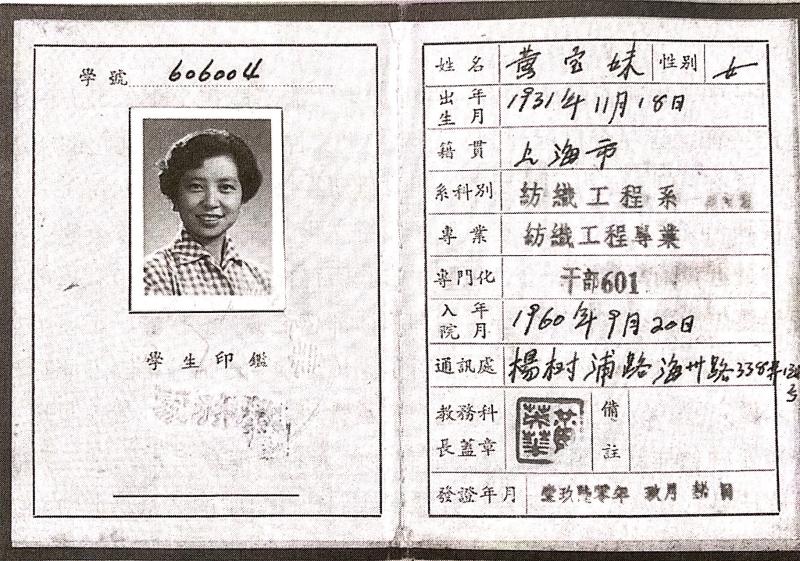 學號 606004
學生印鑑
姓名 黄宝妹 性别 女
出生年月 1931年11月18日
籍貫 上海市
系科别 紡織工程系
專業 紡織工程專業
專門化 干部601
入院年月 1960年9月20日
通訊處 楊树浦路海州路338弄
号
教務科長蓋章 備註
發證年月